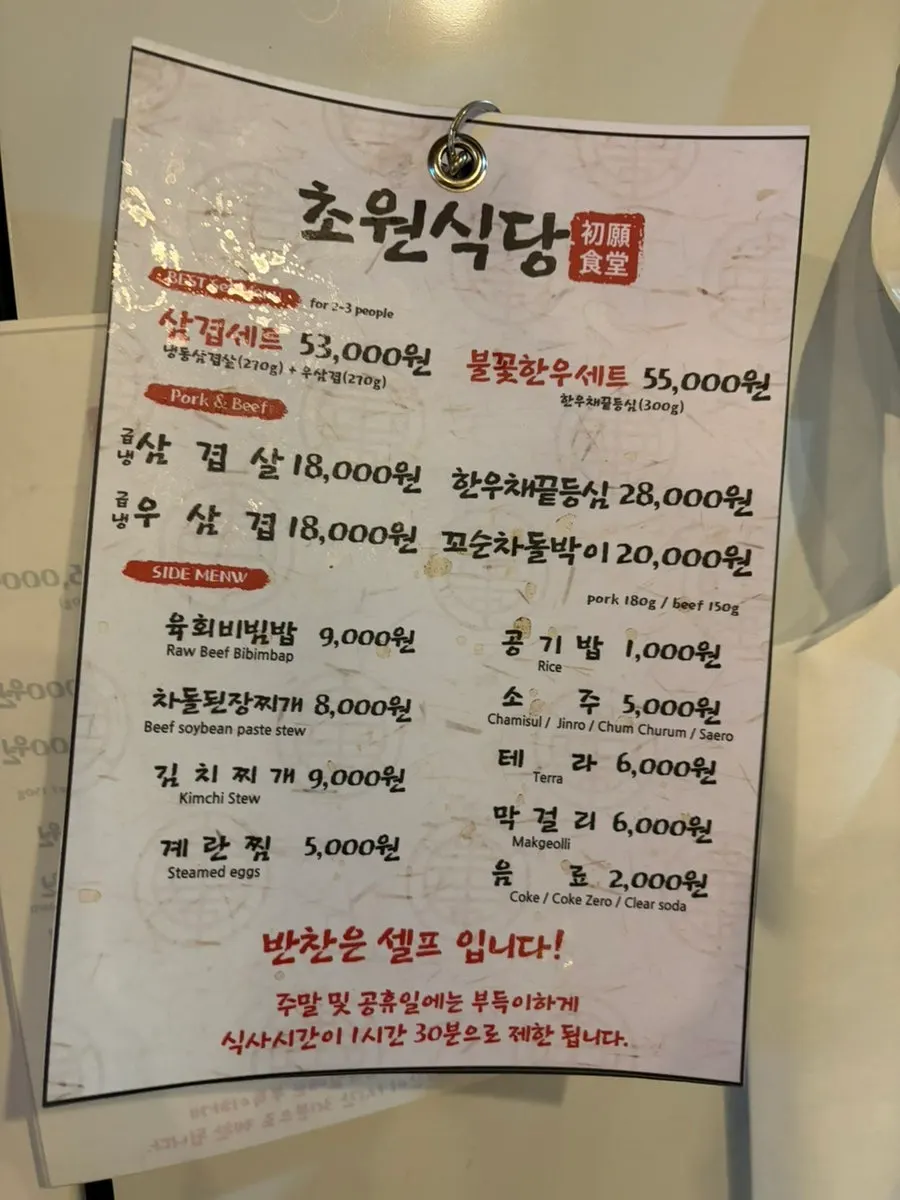 초원식당
初願
食堂
BEST
for 2-3 people
삼겹세트 53,000원
냉동삼겹살(270g) + 우삼겹(270g)
불꽃한우세트 55,000원
한우채끝등심(300g)
Pork & Beef
급냉 삼 겹 살 18,000원
한우채끝등심 28,000원
급냉 우 삼 겹 18,000원
꼬순차돌박이 20,000원
pork 180g / beef 150g
SIDE MENW
육회비빔밥 9,000원
Raw Beef Bibimbap
차돌된장찌개 8,000원
Beef soybean paste stew
김 치 찌 개 9,000원
Kimchi Stew
계 란 찜 5,000원
Steamed eggs
공 기 밥 1,000원
Rice
소 주 5,000원
Chamisul / Jinro / Chum Churum / Saero
테 라 6,000원
Terra
막 걸 리 6,000원
Makgeolli
음 료 2,000원
Coke / Coke Zero / Clear soda
반찬은 셀프 입니다!
주말 및 공휴일에는 부득이하게
식사시간이 1시간 30분으로 제한 됩니다.